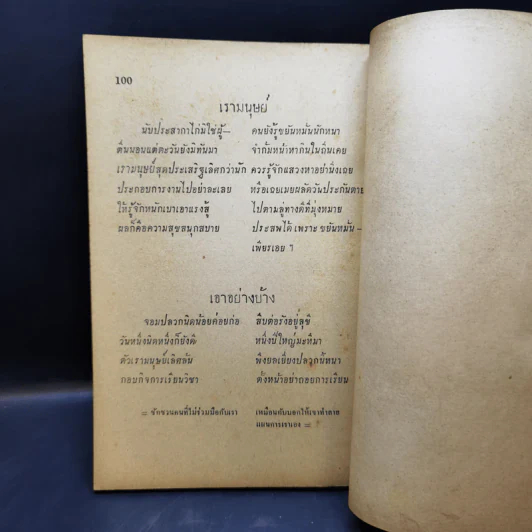 100
เรามนุษย์
นับประสากาไก่มิใช่ผู้— คนยังรู้ขยันหมั่นนักหนา
ตื่นนอนแต่ตะวันยังมิทันมา จำก้มหน้าหากินในถิ่นเคย
เรามนุษย์สุดประเสริฐเลิศกว่านัก ควรรู้จักแสวงหาอย่านิ่งเฉย
ประกอบการงานไปอย่าละเลย หรือเฉยเมยผลัดวันประกันตาย
ให้รู้จักหนักเบาเอาแรงสู้ ไปตามลู่ทางดีที่มุ่งหมาย
ผลก็คือความสุขสนุกสบาย ประสพได้ เพราะ ขยันหมั่น —
เพียรเอย ฯ
เอาอย่างบ้าง
จอมปลวกนิดน้อยค่อยก่อ สืบต่อรังอยู่
วันหนึ่งนิดหนึ่งก็ยังดี หนึ่งปีใหญ่มะหึมา
ตัวเรามนุษย์เลิศล้น พึงยลเยี่ยงปลวกนั้หนา
กอบกิจการเรียนวิชา ตั้งหน้าอย่าถอยการเรียน
= ชักชวนคนที่ไม่ร่วมมือกับเรา เหมือนกับบอกให้เขาทำลาย
แผนการเรา =